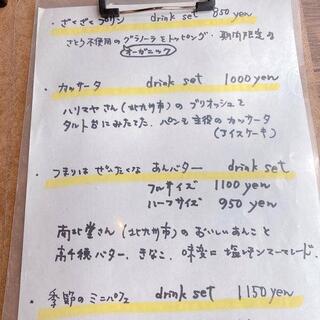 ・ざくざくプリン drink set 850 yen
さとう不使用のグラノーラをトッピング・期間限定
オーガニック
・カッサータ drink set 1000 yen
ハリマヤさん(北九州市)のブリオッシュで
タルト台にみたてた、パンも主役のカッサータ
(アイスケーキ)
・つまりは ぜいたくな あんバター drink set
フルサイズ 1100 yen
ハーフサイズ 950 yen
南北堂さん(北九州市)のおいしいあんこと
高千穂バター、きなこ、味変に塩レモンマーマレード。
・季節のミニパフェ drink set 1150 yen